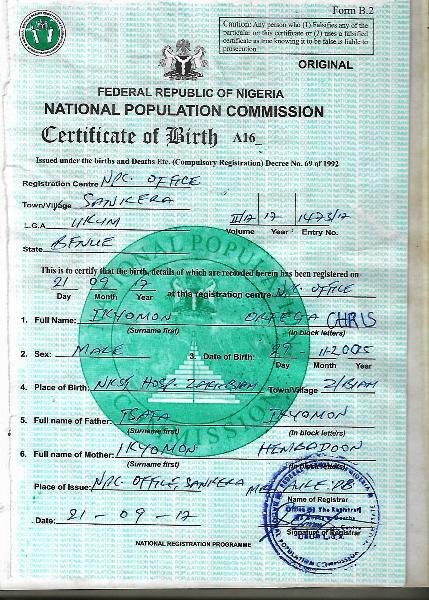 Form B.2
Caution: Any person who (1) Falsifies any of the
particular on this certificate or (2) uses a falsified
certificate as true knowing it to be false is liable to
prosecution
ORIGINAL
FEDERAL REPUBLIC OF NIGERIA
NATIONAL POPULATION COMMISSION
Certificate of Birth A16_
Issued under the births and Deaths Etc. (Compulsory Registration) Decree No. 69 of 1992
Registration Centre NPC. OFFICE
Town/Village SANKERA
L.G.A UKUM
17 1473/17
Volume Year Entry No.
State BENUE
This is to certify that the birth, details of which are recorded herein has been registered on
21 09 17 at this registration centre OFFICE
Day Month Year
1. Full Name: IKYOMON CHRIS
(Surname first) (In block letters)
2. Sex: MALE 3. Date of Birth: 11-2005
Day Month Year
4. Place of Birth: NKST HOSP. Town/Village Z/BIAM
5. Full name of Father: IKYOMON
(Surname first) (In block letters)
6. Full name of Mother: IKYOMON HEMBADOON
(Surname first)
Place of Issue: NPC. OFFICE SANKERA
Name of Registrar
Date: 21 - 09 - 17
Signature of Registrar
NATIONAL REGISTRATION PROGRAMME